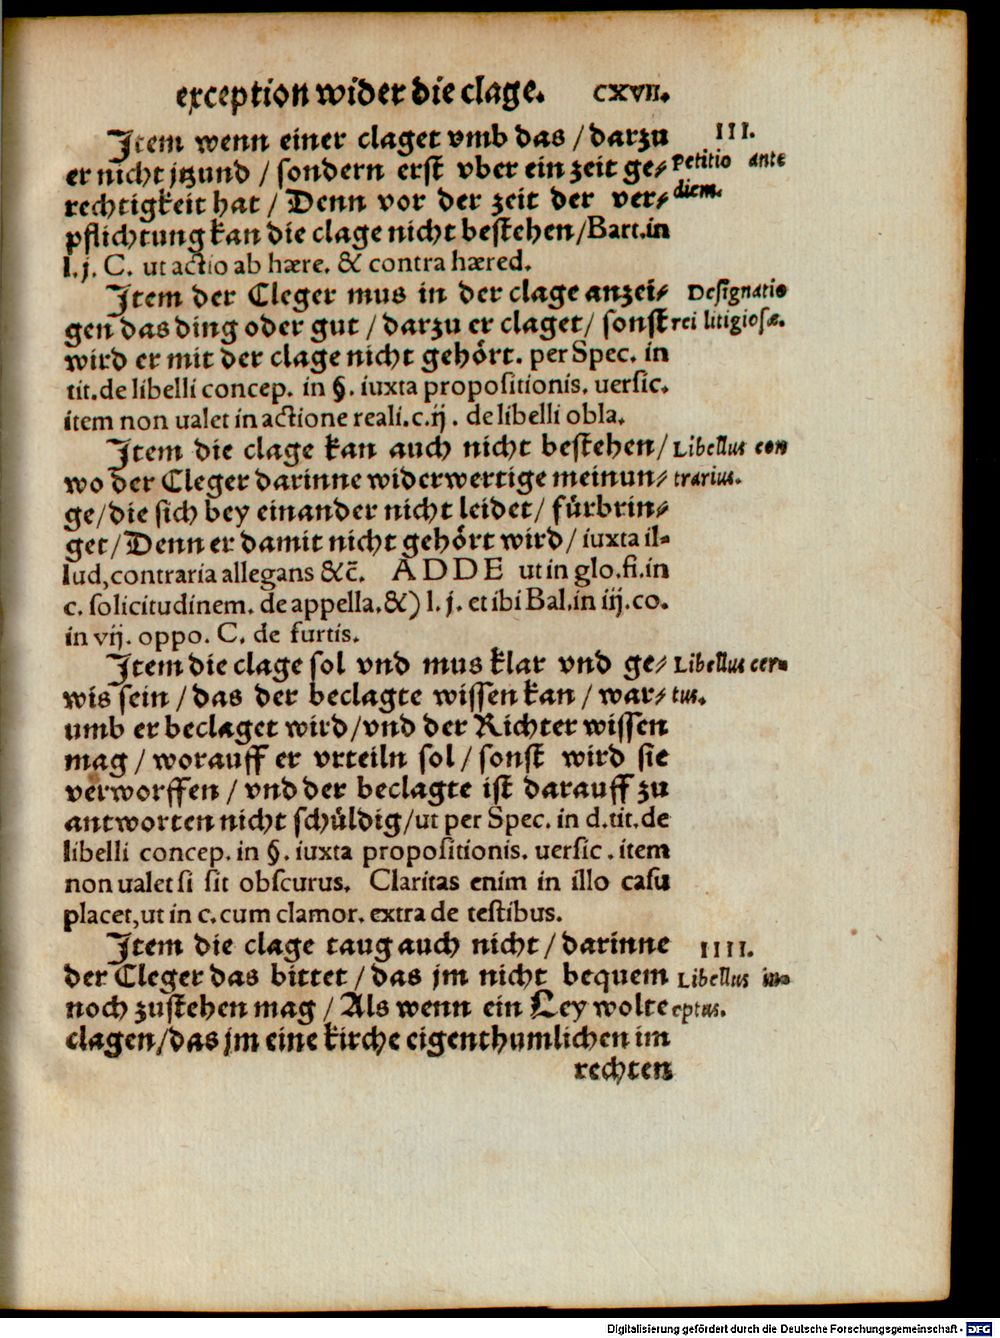 exception wider die clage. CXVII.
Item wenn einer claget vmb das / darzu
er nicht jtzund / sondern erst vber ein zeit ge-
rechtigkeit hat / Denn vor der zeit der ver-
pflichtung kan die clage nicht bestehen / Bart. in
l. j. C. ut actio ab hære. & contra hæred.
III.
Petitio ante
diem.
Item der Cleger mus in der clage anzei-
gen das ding oder gut / darzu er claget / sonst
wird er mit der clage nicht gehört. per Spec. in
tit. de libelli concep. in §. iuxta propositionis. uersic.
item non ualet in actione reali. c. ij. de libelli obla.
Designatio
rei litigiosæ.
Item die clage kan auch nicht bestehen /
wo der Cleger darinne widerwertige meinun-
ge / die sich bey einander nicht leidet / fürbrin-
get / Denn er damit nicht gehört wird / iuxta il-
lud, contraria allegans &c̄. ADDE ut in glo. fi. in
c. solicitudinem. de appella. &) l. j. et ibi Bal. in iij. co.
in vij. oppo. C. de furtis.
Libellus con
trarius.
Item die clage sol vnd mus klar vnd ge-
wis sein / das der beclagte wissen kan / war-
umb er beclaget wird / vnd der Richter wissen
mag / worauff er vrteiln sol / sonst wird sie
verworffen / vnd der beclagte ist darauff zu
antworten nicht schüldig / ut per Spec. in d. tit. de
libelli concep. in §. iuxta propositionis. uersic. item
non ualet si sit obscurus. Claritas enim in illo casu
placet, ut in c. cum clamor. extra de testibus.
Libellus cer-
tus.
Item die clage taug auch nicht / darinne
der Cleger das bittet / das jm nicht bequem
noch zustehen mag / Als wenn ein Ley wolte
clagen / das jm eine kirche eigenthumlichen im
rechten
IIII.
Libellus in-
eptus.
Digitalisierung gefördert durch die Deutsche Forschungsgemeinschaft - DFG